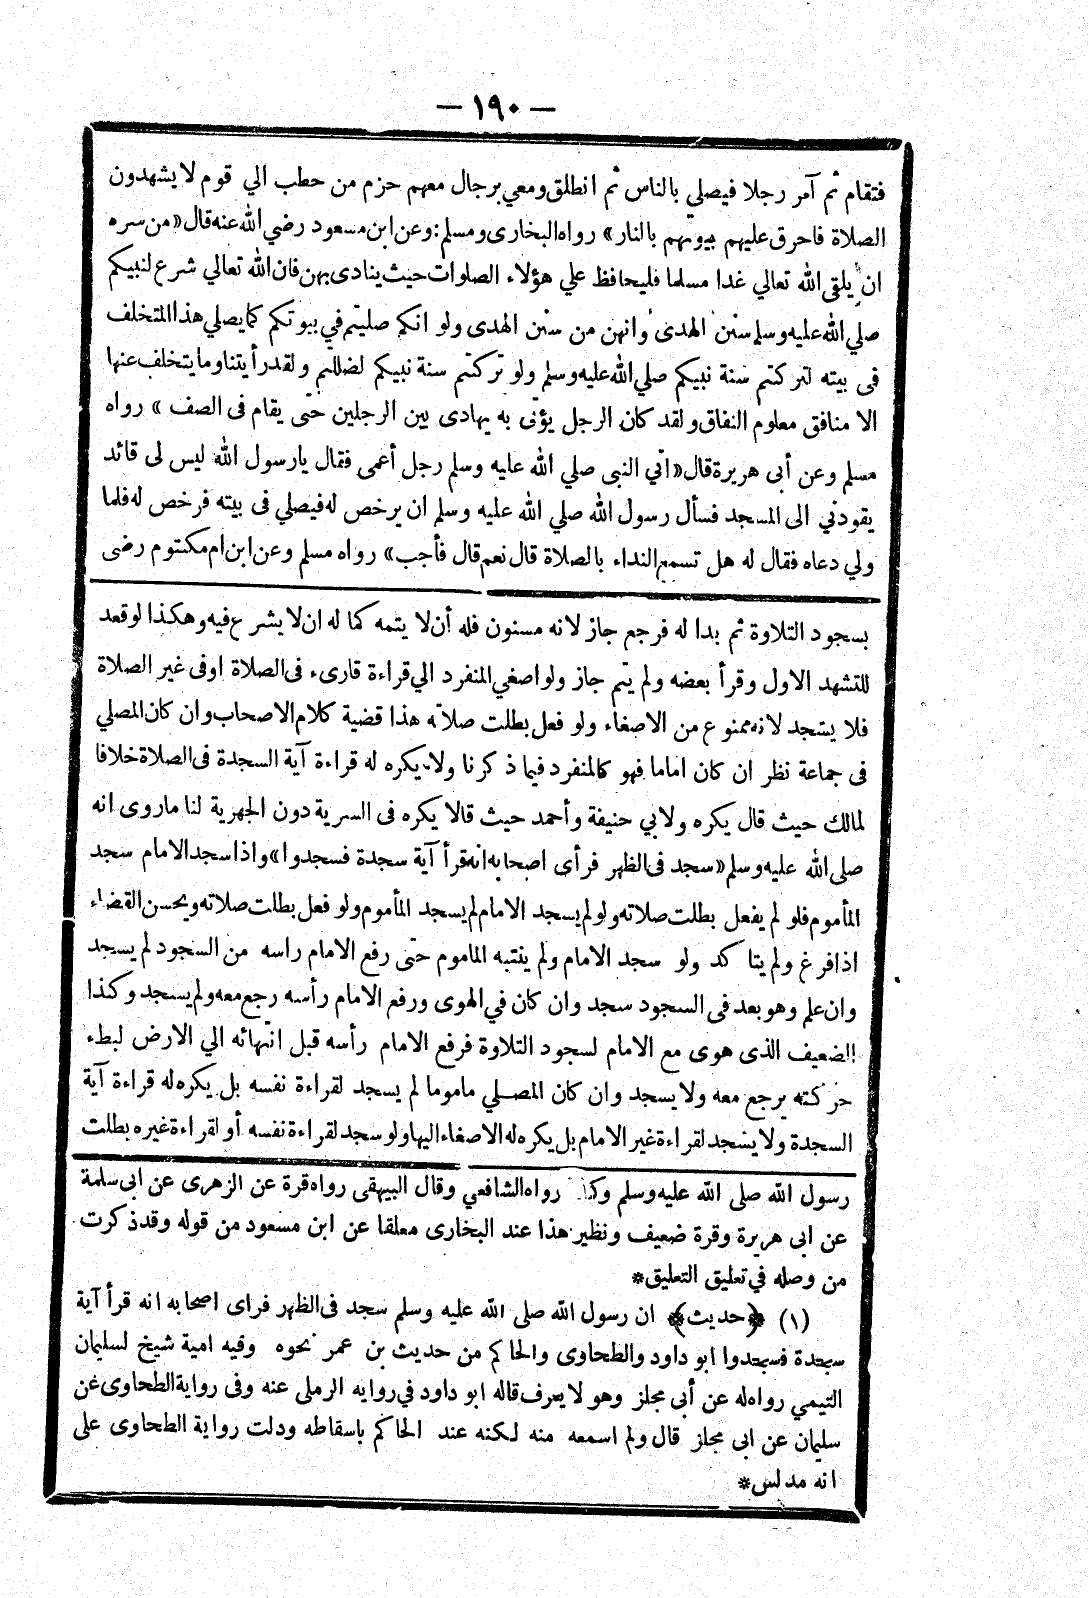 — ١٩٠ —
فتقام ثم آمر رجلا فيصلي بالناس ثم انطلق ومعي برجال معهم حزم من حطب الي قوم لا يشهدون
الصلاة فاحرق عليهم بيوتهم بالنار» رواه البخارى ومسلم: وعن ابن مسعود رضي الله عنه قال «من سره
ان يلقى الله تعالي غدا مسلما فليحافظ علي هؤلاء الصلوات حيث ينادى بهن فان الله تعالي شرع لنبيكم
صلي الله عليه وسلم سنن الهدى وانهن من سنن الهدى ولو انكم صليتم في بيوتكم كما يصلي هذا المتخلف
فى بيته لتركتم سنة نبيكم صلي الله عليه وسلم ولو تركتم سنة نبيكم لضللتم ولقد رأيتنا وما يتخلف عنها
الا منافق معلوم النفاق ولقد كان الرجل يؤتى به يهادى بين الرجلين حتى يقام فى الصف » رواه
مسلم وعن أبى هريرة قال «اتي النبى صلي الله عليه وسلم رجل أعمى فقال يارسول الله ليس لى قائد
يقودني الى المسجد فسأل رسول الله صلي الله عليه وسلم ان يرخص له فيصلي فى بيته فرخص له فلما
ولي دعاه فقال له هل تسمع النداء بالصلاة قال نعم قال فأجب» رواه مسلم وعن ابن ام مكتوم رضى
بسجود التلاوة ثم بدا له فرجع جاز لانه مسنون فله أن لا يتمه كما له ان لا يشرع فيه وهكذا لو قعد
للتشهد الاول وقرأ بعضه ولم يتم جاز ولو اصغي المنفرد الي قراءة قارىء فى الصلاة اوفى غير الصلاة
فلا يسجد لانه ممنوع من الاصغاء ولو فعل بطلت صلاته هذا قضية كلام الاصحاب وان كان المصلي
فى جماعة نظر ان كان اماما فهو كالمنفرد فيما ذكرنا ولا يكره له قراءة آية السجدة فى الصلاة خلافا
لمالك حيث قال يكره ولابي حنيفة وأحمد حيث قالا يكره فى السرية دون الجهرية لنا ماروى انه
صلى الله عليه وسلم «سجد فى الظهر فرأى اصحابه انه قرأ آية سجدة فسجدوا» واذا سجد الامام سجد
المأموم فلو لم يفعل بطلت صلاته ولو لم يسجد الامام لم يسجد المأموم ولو فعل بطلت صلاته ويحسن القضاء
اذا فرغ ولم يتاكد ولو سجد الامام ولم ينتبه الماموم حتى رفع الامام راسه من السجود لم يسجد
وان علم وهو بعد فى السجود سجد وان كان في الهوى ورفع الامام رأسه رجع معه ولم يسجد وكذا
الضعيف الذى هوى مع الامام لسجود التلاوة فرفع الامام رأسه قبل انتهائه الي الارض لبطء
حركته يرجع معه ولا يسجد وان كان المصلي ماموما لم يسجد لقراءة نفسه بل يكره له قراءة آية
السجدة ولا يسجد لقراءة غير الامام بل يكره له الاصغاء اليها ولو سجد لقراءة نفسه أو لقراءة غيره بطلت
رسول الله صلى الله عليه وسلم رواه الشافعي وقال البيهقى رواه قرة عن الزهرى عن ابى سلمة
عن ابى هريرة وقرة ضعيف ونظير هذا عند البخارى معلقا عن ابن مسعود من قوله وقد ذكرت
من وصله في تعليق التعليق*
(١) ﴿حديث﴾ ان رسول الله صلى الله عليه وسلم سجد فى الظهر فراى اصحابه انه قرأ آية
سجدة فسجدوا ابو داود والطحاوى والحاكم من حديث بن عمر نحوه وفيه امية شيخ لسليمان
التيمي رواه له عن أبى مجلز وهو لا يعرف قاله ابو داود في روايه الرملى عنه وفى رواية الطحاوى عن
سليمان عن ابى مجلز قال ولم اسمعه منه لكنه عند الحاكم باسقاطه ودلت رواية الطحاوى على
انه مدلس*